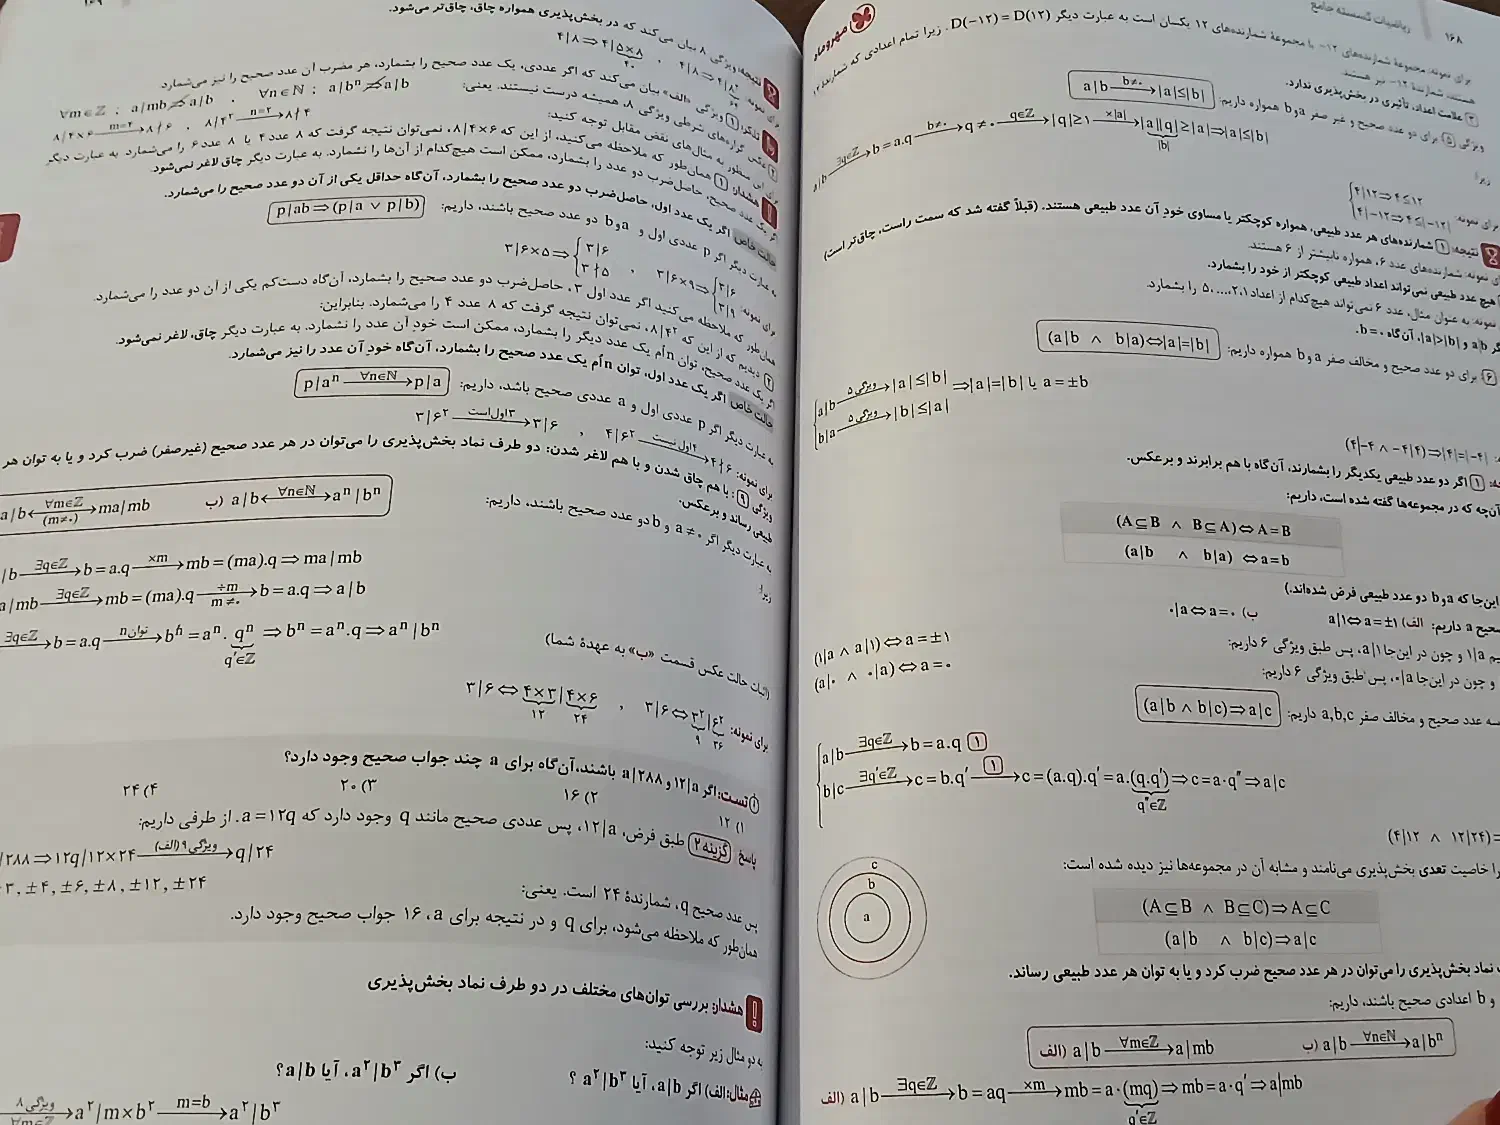 ۱۶۸
ریاضیات گسسته جامع
مهروماه
برای نمونه: مجموعهٔ شمارنده‌های ۱۲− با مجموعهٔ شمارنده‌های ۱۲ یکسان است به عبارت دیگر D(−۱۲) = D(۱۲). زیرا تمام اعدادی که شمارندهٔ ۱۲
هستند، شمارندهٔ ۱۲− نیز هستند.
۳ علامت اعداد، تأثیری در بخش‌پذیری ندارد.
ویژگی ۵: برای دو عدد صحیح و غیر صفر a و b همواره داریم: a|b —b≠۰→ |a|≤|b|
زیرا:
a|b —∃q∈ℤ→ b=a.q —b≠۰→ q≠۰ —q∈ℤ→ |q|≥۱ —×|a|→ |a||q|≥|a| ⇒ |a|≤|b|
|b|
برای نمونه: {۴|۱۲ ⇒ ۴≤۱۲
۴|−۱۲ ⇒ ۴≤|−۱۲|
نتیجه: ۱ شمارنده‌های هر عدد طبیعی، همواره کوچکتر یا مساوی خودِ آن عدد طبیعی هستند. (قبلاً گفته شد که سمت راست، چاق‌تر است)
نمونه: شمارنده‌های عدد ۶، همواره نابیشتر از ۶ هستند.
هیچ عدد طبیعی نمی‌تواند اعداد طبیعی کوچکتر از خود را بشمارد.
نمونه: به عنوان مثال، عدد ۶ نمی‌تواند هیچ‌کدام از اعداد ۱،۲،...،۵ را بشمارد.
a|b و |a|>|b|، آن‌گاه b=۰.
۶: برای دو عدد صحیح و مخالف صفر a و b همواره داریم: (a|b ∧ b|a)⇔|a|=|b|
{a|b —ویژگی ۵→ |a|≤|b|
b|a —ویژگی ۵→ |b|≤|a| ⇒|a|=|b| یا a=±b
(۴|−۴ ∧ −۴|۴)⇒|۴|=|−۴|
۱ اگر دو عدد طبیعی یکدیگر را بشمارند، آن‌گاه با هم برابرند و برعکس.
آن‌چه که در مجموعه‌ها گفته شده است، داریم:
(A⊆B ∧ B⊆A)⇔A=B
(a|b ∧ b|a) ⇔a=b
این‌جا که a و b دو عدد طبیعی فرض شده‌اند.)
صحیح a داریم: الف) a|۱⇔a=±۱ ب) ۰|a⇔a=۰
a|۱ و چون در این‌جا ۱|a، پس طبق ویژگی ۶ داریم: (۱|a ∧ a|۱)⇔a=±۱
و چون در این‌جا a|۰، پس طبق ویژگی ۶ داریم: (a|۰ ∧ ۰|a)⇔a=۰
سه عدد صحیح و مخالف صفر a,b,c داریم: (a|b ∧ b|c)⇒a|c
{a|b —∃q∈ℤ→ b=a.q ۱
b|c —∃q′∈ℤ→ c=b.q′ —۱→ c=(a.q).q′=a.(q.q′)⇒c=a·q″⇒a|c
q″∈ℤ
(۴|۱۲ ∧ ۱۲|۲۴)=
را خاصیت تعدی بخش‌پذیری می‌نامند و مشابه آن در مجموعه‌ها نیز دیده شده است:
c
b
a
(A⊆B ∧ B⊆C)⇒A⊆C
(a|b ∧ b|c)⇒a|c
نماد بخش‌پذیری را می‌توان در هر عدد صحیح ضرب کرد و یا به توان هر عدد طبیعی رساند.
و b اعدادی صحیح باشند، داریم:
الف) a|b —∀m∈ℤ→ a|mb ب) a|b —∀n∈ℕ→ a|bⁿ
الف) a|b —∃q∈ℤ→ b=aq —×m→ mb=a·(mq)⇒mb=a·q′⇒a|mb
q′∈ℤ
۱۶۹
نتیجه: ویژگی ۸ بیان می‌کند که در بخش‌پذیری همواره چاق، چاق‌تر می‌شود.
برای نمونه: ۴|۸⇒۴|۸² , ۴|۸⇒۴|۵×۸
۶۴ ۴۰
تذکر: ۱ ویژگی «الف» بیان می‌کند که اگر عددی، یک عدد صحیح را بشمارد، هر مضرب آن عدد صحیح را نیز می‌شمارد.
۲ عکس گزاره‌های شرطی ویژگی ۸، همیشه درست نیستند. یعنی: ∀m∈ℤ ; a|mb⇏a|b , ∀n∈ℕ ; a|bⁿ⇏a|b
برای این منظور به مثال‌های نقض مقابل توجه کنید: ۸|۴×۶ —m=۴→ ۸∤۶ , ۸|۴² —n=۲→ ۸∤۴
هشدار: ۱ همان‌طور که ملاحظه می‌کنید، از این که ۸|۴×۶، نمی‌توان نتیجه گرفت که ۸ عدد ۴ یا ۸ عدد ۶ را می‌شمارد. به عبارت دیگر
اگر یک عدد صحیح، حاصل‌ضرب دو عدد را بشمارد، ممکن است هیچ‌کدام از آن‌ها را نشمارد. به عبارت دیگر چاق لاغر نمی‌شود.
حالت خاص اگر یک عدد اول، حاصل‌ضرب دو عدد صحیح را بشمارد، آن‌گاه حداقل یکی از آن دو عدد صحیح را می‌شمارد.
به عبارت دیگر اگر p عددی اول و a و b دو عدد صحیح باشند، داریم: p|ab⇒(p|a ∨ p|b)
برای نمونه: ۳|۶×۹⇒{۳|۶
۳|۹ , ۳|۶×۵⇒{۳|۶
۳∤۵
همان‌طور که ملاحظه می‌کنید اگر عدد اول ۳، حاصل‌ضرب دو عدد صحیح را بشمارد، آن‌گاه دست‌کم یکی از آن دو عدد را می‌شمارد.
۲ دیدیم که از این که ۸|۴²، نمی‌توان نتیجه گرفت که ۸ عدد ۴ را می‌شمارد. بنابراین:
اگر یک عدد صحیح، توان nاُم یک عدد دیگر را بشمارد، ممکن است خودِ آن عدد را نشمارد. به عبارت دیگر چاق، لاغر نمی‌شود.
حالت خاص اگر یک عدد اول، توان nاُم یک عدد صحیح را بشمارد، آن‌گاه خودِ آن عدد را نیز می‌شمارد.
به عبارت دیگر اگر p عددی اول و a عددی صحیح باشد، داریم: p|aⁿ —∀n∈ℕ→ p|a
برای نمونه: ۳|۶² —۳ اول است→ ۳|۶ , ۴|۶² —۴ اول نیست→ ۴∤۶
ویژگی ۹: با هم چاق شدن و با هم لاغر شدن: دو طرف نماد بخش‌پذیری را می‌توان در هر عدد صحیح (غیرصفر) ضرب کرد و یا به توان هر
طبیعی رساند و برعکس.
به عبارت دیگر اگر a≠۰ و b دو عدد صحیح باشند، داریم:
a|b ←∀m∈ℤ (m≠۰)→ ma|mb ب) a|b ←∀n∈ℕ→ aⁿ|bⁿ
زیرا:
|b —∃q∈ℤ→ b=a.q —×m→ mb=(ma).q⇒ma|mb
a|mb —∃q∈ℤ→ mb=(ma).q —÷m m≠۰→ b=a.q⇒a|b
—∃q∈ℤ→ b=a.q —توان n→ bⁿ=aⁿ.qⁿ⇒bⁿ=aⁿ.q⇒aⁿ|bⁿ
q′∈ℤ
(اثبات حالت عکس قسمت «ب» به عهدهٔ شما)
برای نمونه: ۳|۶⇔۳²|۶² , ۳|۶⇔۴×۳|۴×۶
۹ ۳۶ ۱۲ ۲۴
تست: اگر ۱۲|a و a|۲۸۸ باشند، آن‌گاه برای a چند جواب صحیح وجود دارد؟
۱) ۱۲ ۲) ۱۶ ۳) ۲۰ ۴) ۲۴
پاسخ گزینه ۲ طبق فرض، ۱۲|a، پس عددی صحیح مانند q وجود دارد که a=۱۲q. از طرفی داریم:
|۲۸۸⇒۱۲q|۱۲×۲۴ —ویژگی ۹ (الف)→ q|۲۴
پس عدد صحیح q، شمارندهٔ ۲۴ است. یعنی: ۳,±۴,±۶,±۸,±۱۲,±۲۴
همان‌طور که ملاحظه می‌شود، برای q و در نتیجه برای a، ۱۶ جواب صحیح وجود دارد.
هشدار: بررسی توان‌های مختلف در دو طرف نماد بخش‌پذیری
به دو مثال زیر توجه کنید:
مثال: الف) اگر a|b، آیا a²|b³ ؟ ب) اگر a²|b³، آیا a|b؟
—ویژگی ۸ ∀m∈ℤ→ a²|m×b² —m=b→ a²|b³